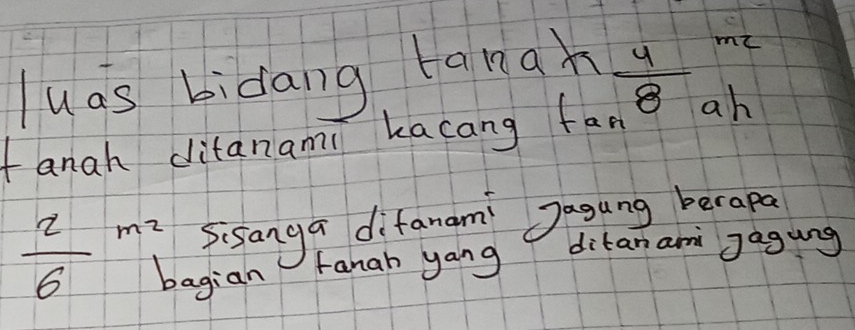 luas bidang tanah 4/8 m2
tanah ditanami kacang tan ah
2/6 m2 sisanya ditanami Jagung berapa
bagian tanah yang ditanami Jagung